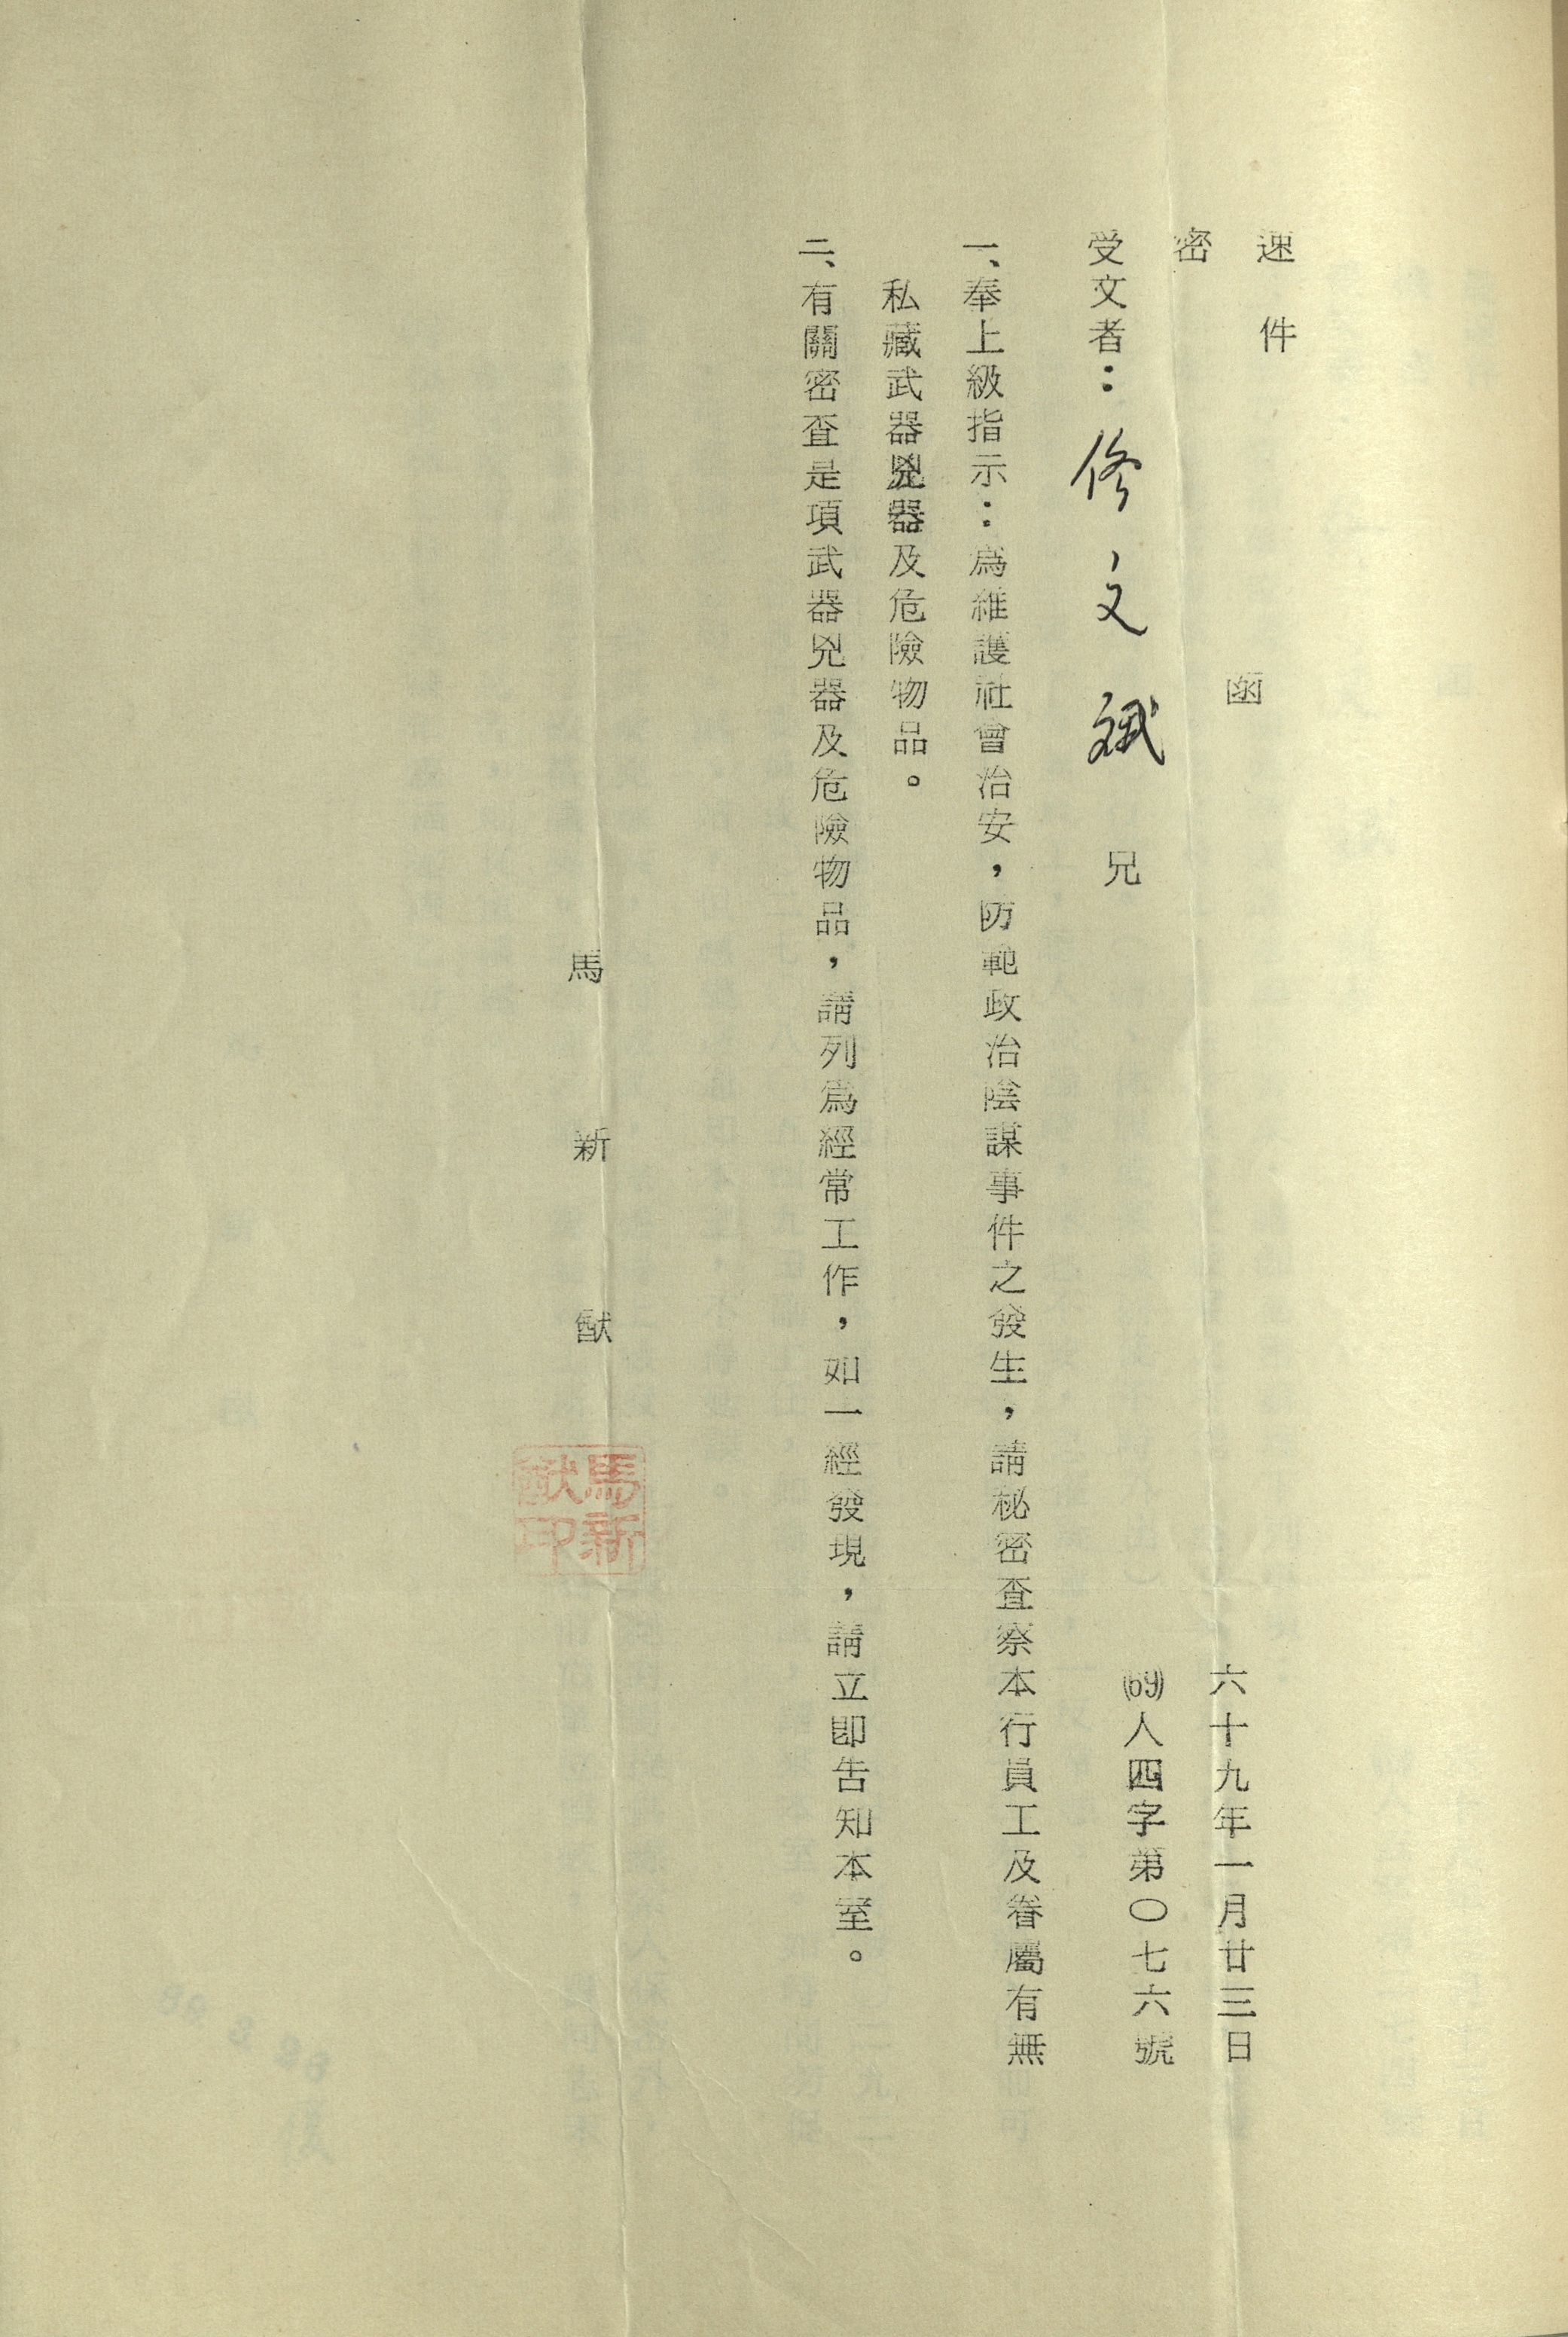 速件
密
函
六十九年一月廿三日
(69)人四字第〇七六號
受文者：修文斌兄
一、奉上級指示：為維護社會治安，防範政治陰謀事件之發生，請秘密查察本行員工及眷屬有無
私藏武器兇器及危險物品。
二、有關密查是項武器兇器及危險物品，請列為經常工作，如一經發現，請立即告知本室。
馬新猷
馬新
猷印